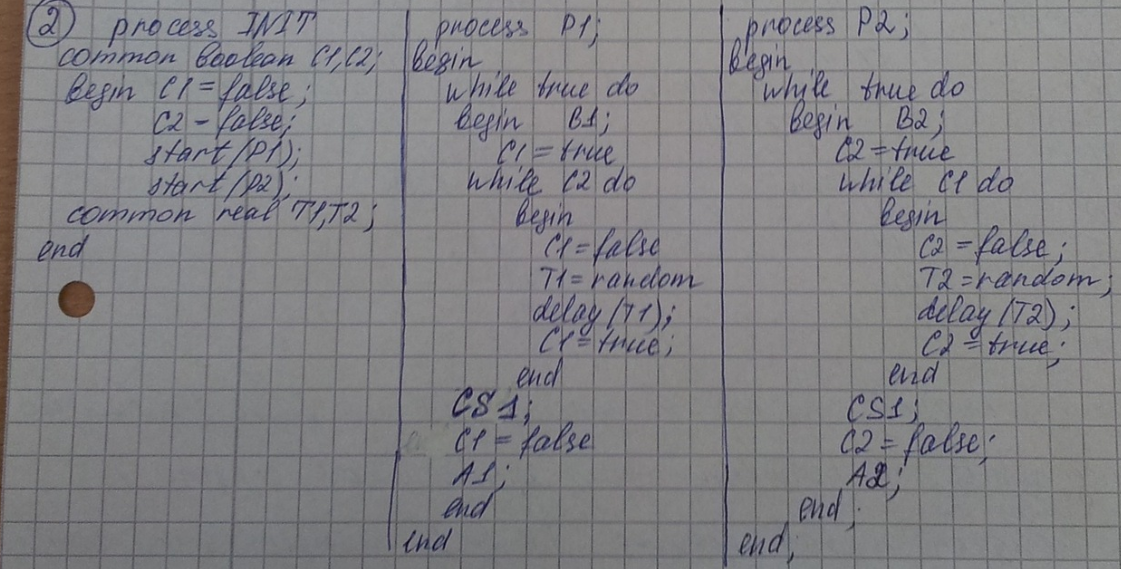 2 process INIT
common boolean C1,C2;
begin C1 = false;
C2 - false;
start(P1);
start(P2);
common real T1,T2;
end
process P1;
begin
while true do
begin B1;
C1 = true
while C2 do
begin
C1 = false
T1 = random
delay(T1);
C1 = true;
end
CS1;
C1 = false
A1;
end
end
process P2;
begin
while true do
begin B2;
C2 = true
while C1 do
begin
C2 = false;
T2 = random;
delay(T2);
C2 = true;
end
CS1;
C2 = false;
A2;
end;
end;